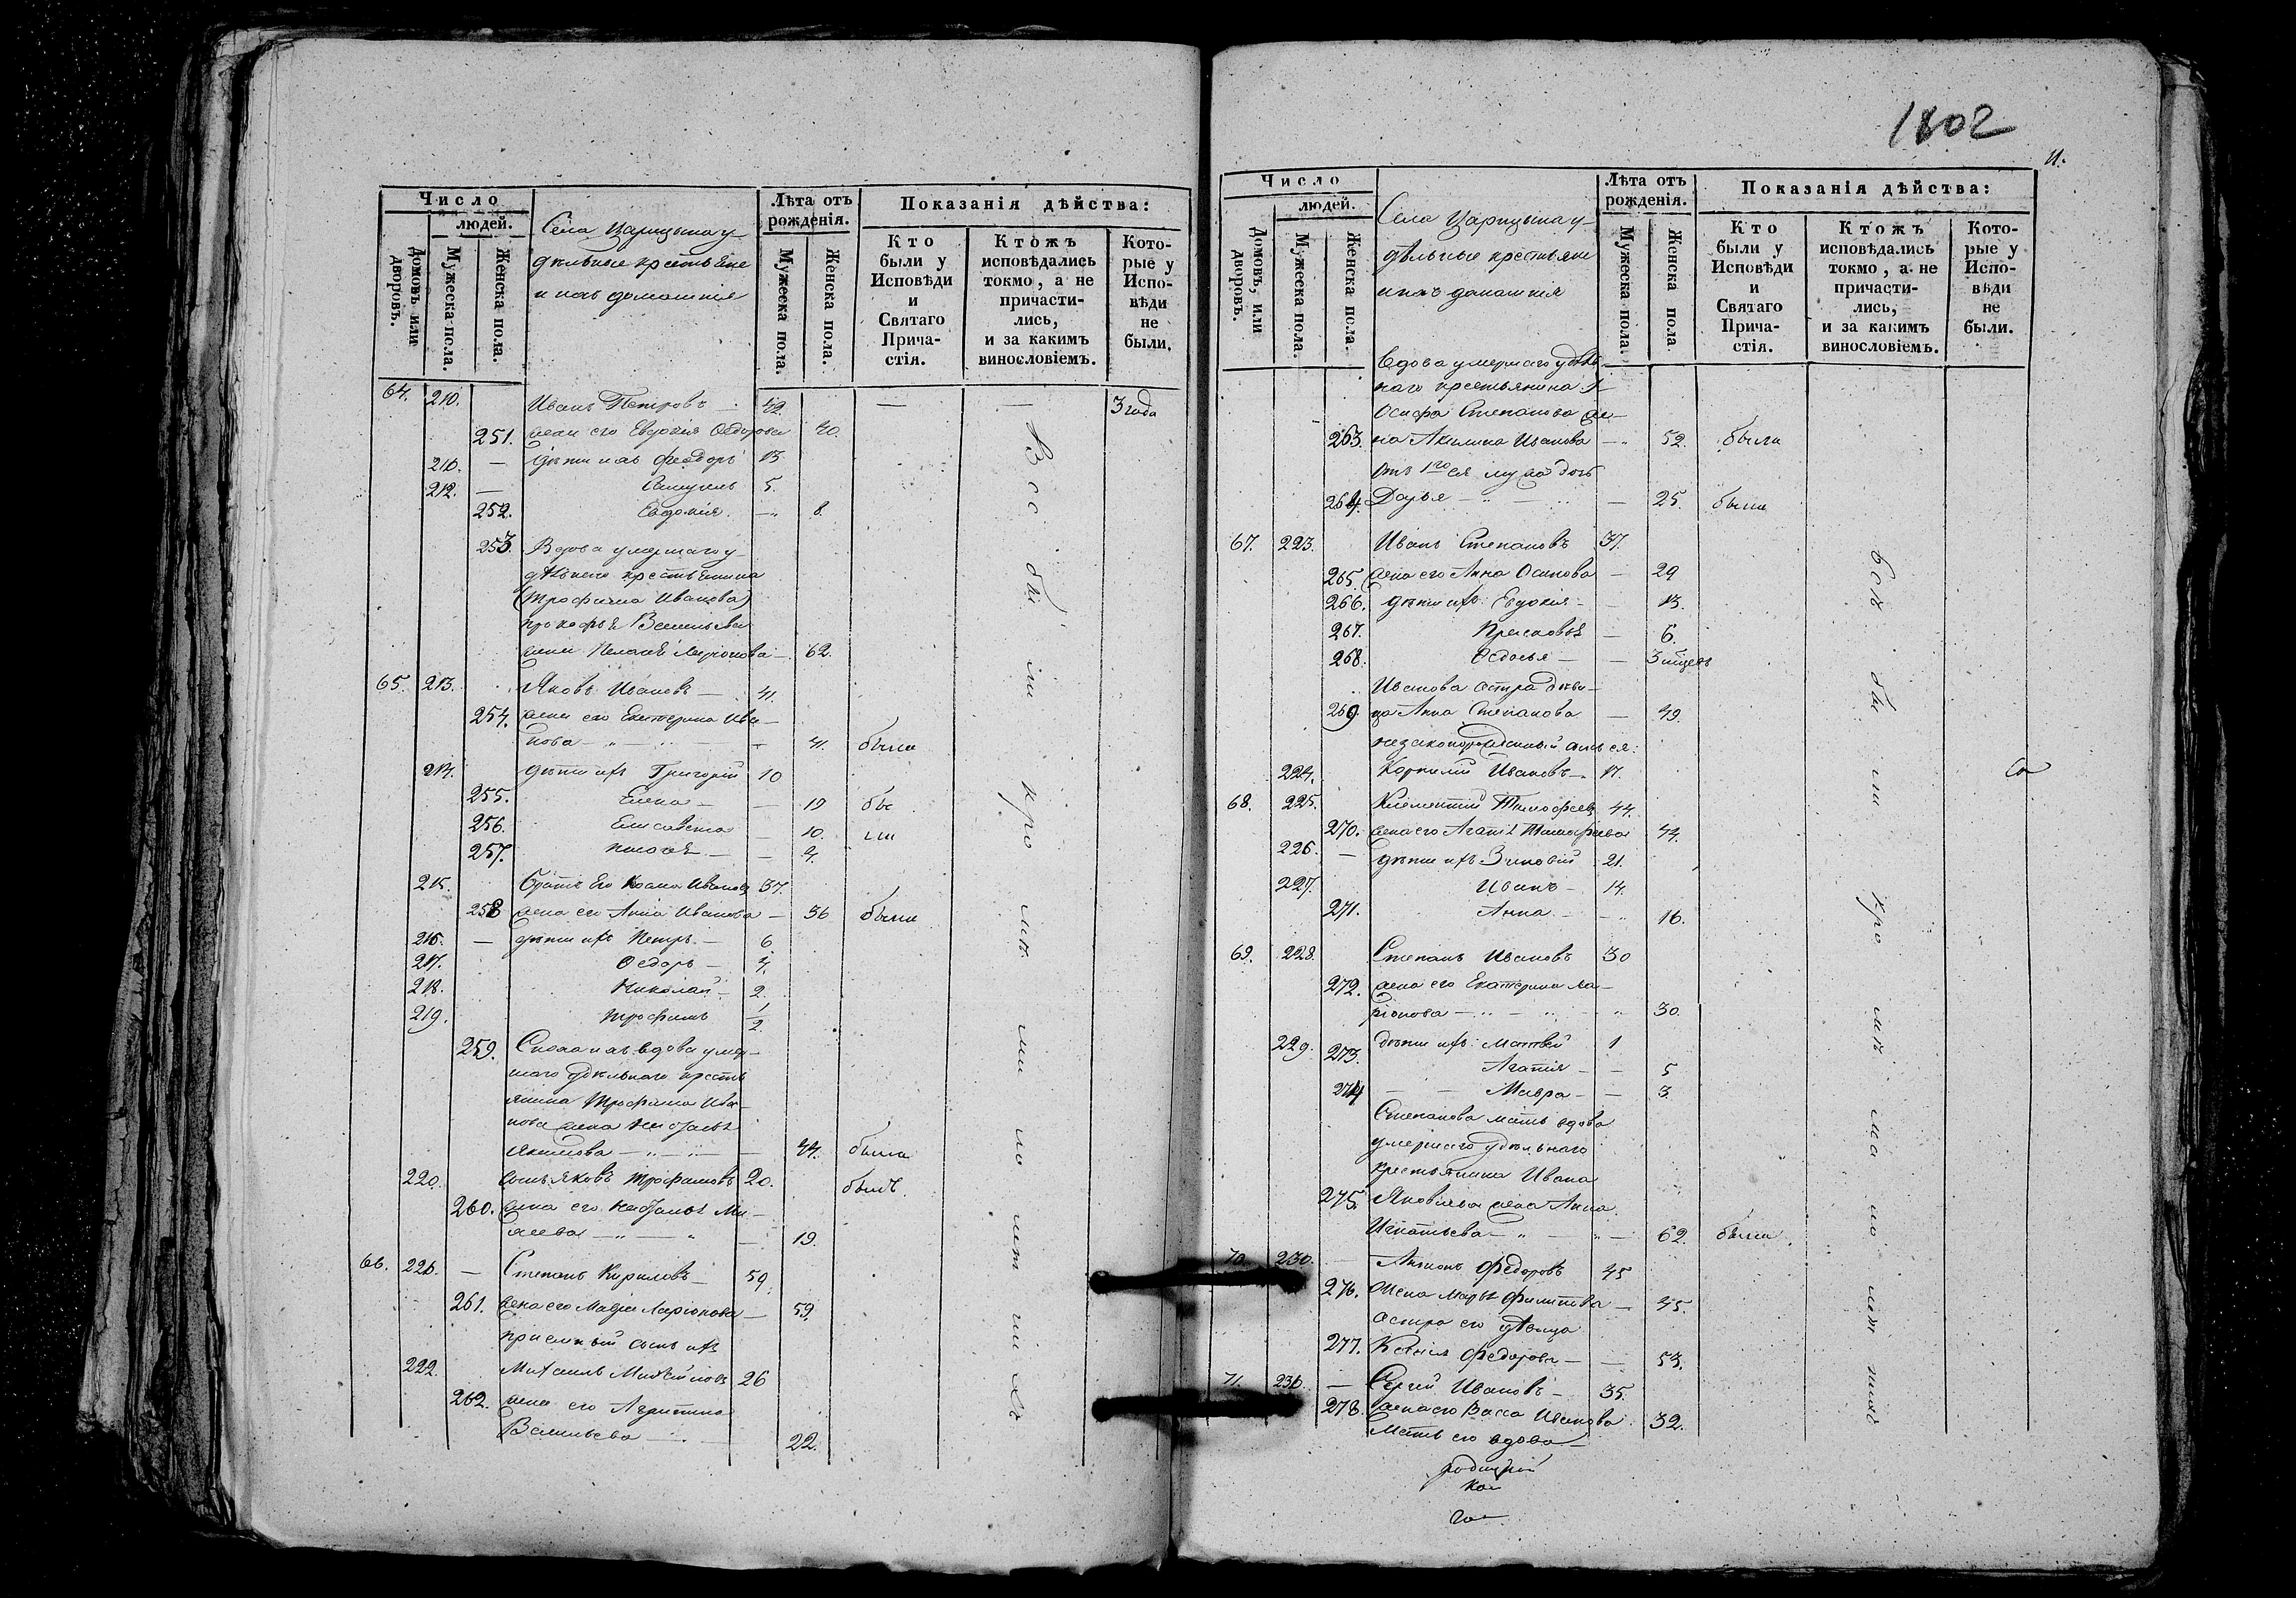 Число
людей.
Домовъ, или дворовъ.
Мужеска пола.
Женска пола.
Села Царицына у-
дѣльные крестьяне
и ихъ домашнія
Лѣта отъ рожденія.
Мужеска пола.
Женска пола.
Показанія дѣйства:
Кто были у Исповѣди и Святаго Прича-стія.
Ктожъ исповѣдались токмо, а не причасти-лись, и за какимъ винословіемъ.
Кото-рые у Испо-вѣди не были.
64. 210. Иванъ Петровъ — 42. — — 3 года
251. жена его Евдокія Ѳедорова 40.
211. — дѣти ихъ Феодоръ 13
212. — 5.
252. Евдокія — 8.
253. Вдова умершаго у-
дѣльнаго крестьянина
(Трофима Иванова)
Васильева
жена Ларіонова — 62.
65. 213. Яковъ Ивановъ — 41.
254. жена его Екатерина Ива-
нова — 41. была
214. дѣти ихъ Григорій 10
255. Елена — — 19 бы
256. Елисавета — 10. ли
257. — — 4.
215. братъ его Косма Ивановъ 37.
258 жена его Анна Иванова — 36 была
216. — дѣти ихъ Петръ — 6
217. Ѳедоръ — 4.
218. Николай — 2
219. Трофимъ 1/2
259. вдова умер-
шаго удѣльнаго кресть
янина Трофима Ива-
нова жена
Якимова — 44. была
220. сынъ Яковъ Трофимовъ 20. былъ.
260. жена его Ми-
— 19.
66. 221. — Степанъ Кириловъ — 59.
261. жена его Ларіонова — 59.
пріемный сынъ ихъ
222. Михаилъ 26
262. жена его
Васильева — 22.
Всѣ бы ли кро мѣ ма ло лѣт ни хъ
1802
11.
Число
людей.
Домовъ, или дворовъ.
Мужеска пола.
Женска пола.
Села Царицына у-
дѣльные крестьяне
и ихъ домашнія
Лѣта отъ рожденія.
Мужеска пола.
Женска пола
Показанія дѣйства:
Кто были у Исповѣди и Святаго Прича-стія.
Ктожъ исповѣдались токмо, а не причасти-лись, и за какимъ винословіемъ.
Кото-рые у Испо-вѣди не были.
Вдова умершаго удѣль
наго крестьянина
Осифа Степанова же-
263. на Акилина Иванова — 52. была
отъ 1го ея мужа дочь
264. Дарья — — 25. была
67. 223. Иванъ Степановъ 37.
265. жена его Анна Осипова — 29
266. дѣти ихъ Евдокія — — 13.
267. — 6.
268. Ѳедосья — — 3 мѣсяцъ
Иванова сестра дѣви-
269. ца Анна Степанова — 49.
незаконорожденный сынъ ея
224. Корнилій Ивановъ — 17.
68. 225. Климентій Тимофеевъ 44.
270. жена его Тимофеева 44.
226. — дѣти ихъ Зиновій 21.
227. Иванъ — 14.
271. Анна — — 16.
69. 228. Степанъ Ивановъ 30
272. жена его Екатерина Ла-
ріонова — 30.
229. дѣти ихъ: Матвей 1
273. Агапія — — 5
274 — — Мавра — — 3.
Степанова мать вдова
умершаго удѣльнаго
крестьянина Ивана
275. Яковлева жена Анна
Игнатьева — 62. была.
70. 230. — Федоровъ 45
276. жена — 45.
сестра его дѣвица
277. Ксенія Федорова — — 53.
71. 231. — Сергій Ивановъ — 35.
278. жена его Васса Иванова 32.
Мать его вдова —
Всѣ бы ли кро мѣ ма ло лѣт нихъ